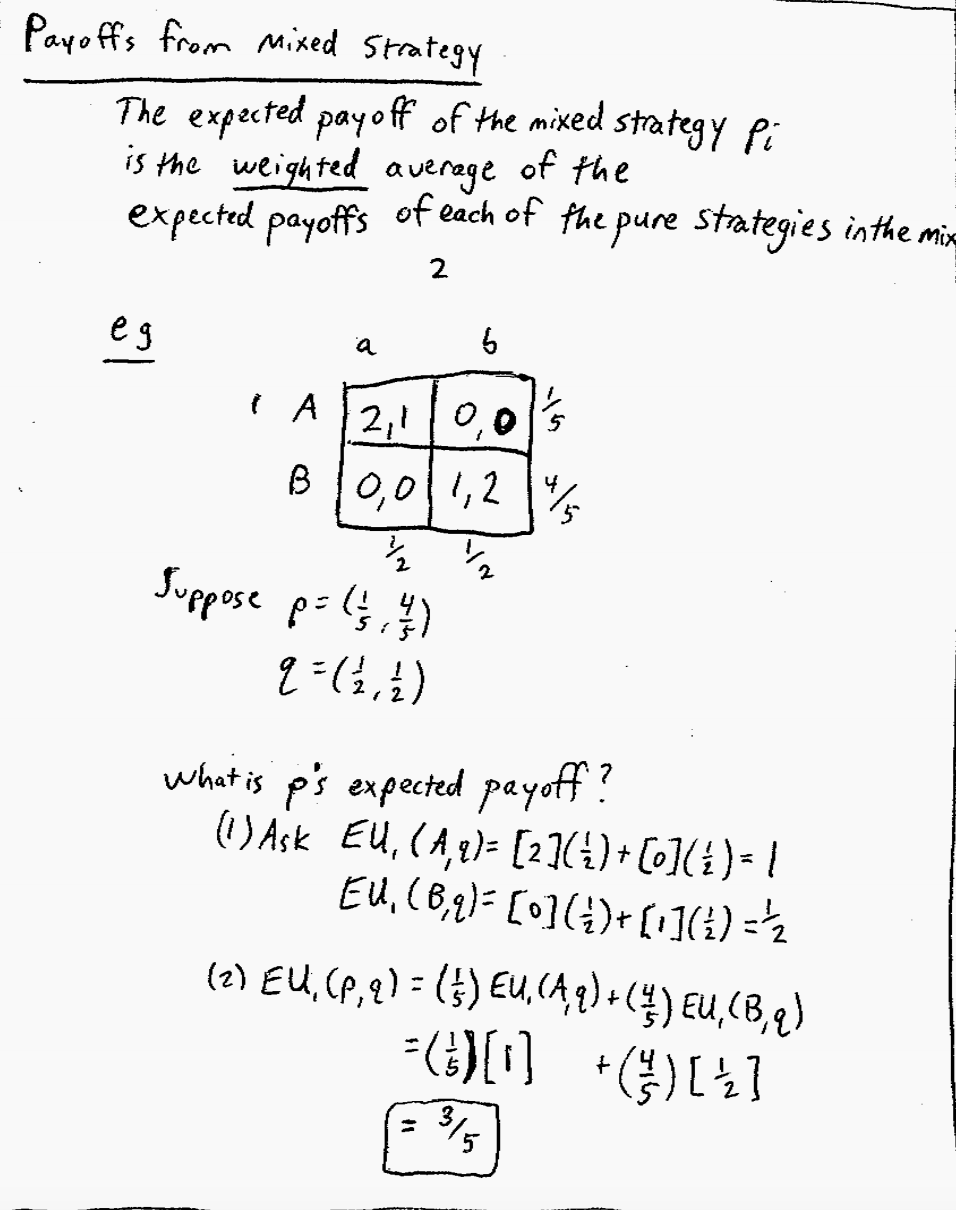 Payoffs from Mixed Strategy
The expected payoff of the mixed strategy Pi
is the weighted average of the
expected payoffs of each of the pure strategies in the mix
2
eg
a b
1 A 2,1 0,0 1/5
B 0,0 1,2 4/5
1/2 1/2
Suppose p = (1/5, 4/5)
q = (1/2, 1/2)
What is p's expected payoff?
(1) Ask EU1(A,q) = [2](1/2) + [0](1/2) = 1
EU1(B,q) = [0](1/2) + [1](1/2) = 1/2
(2) EU1(p,q) = (1/5) EU1(A,q) + (4/5) EU1(B,q)
= (1/5)[1] + (4/5)[1/2]
= 3/5